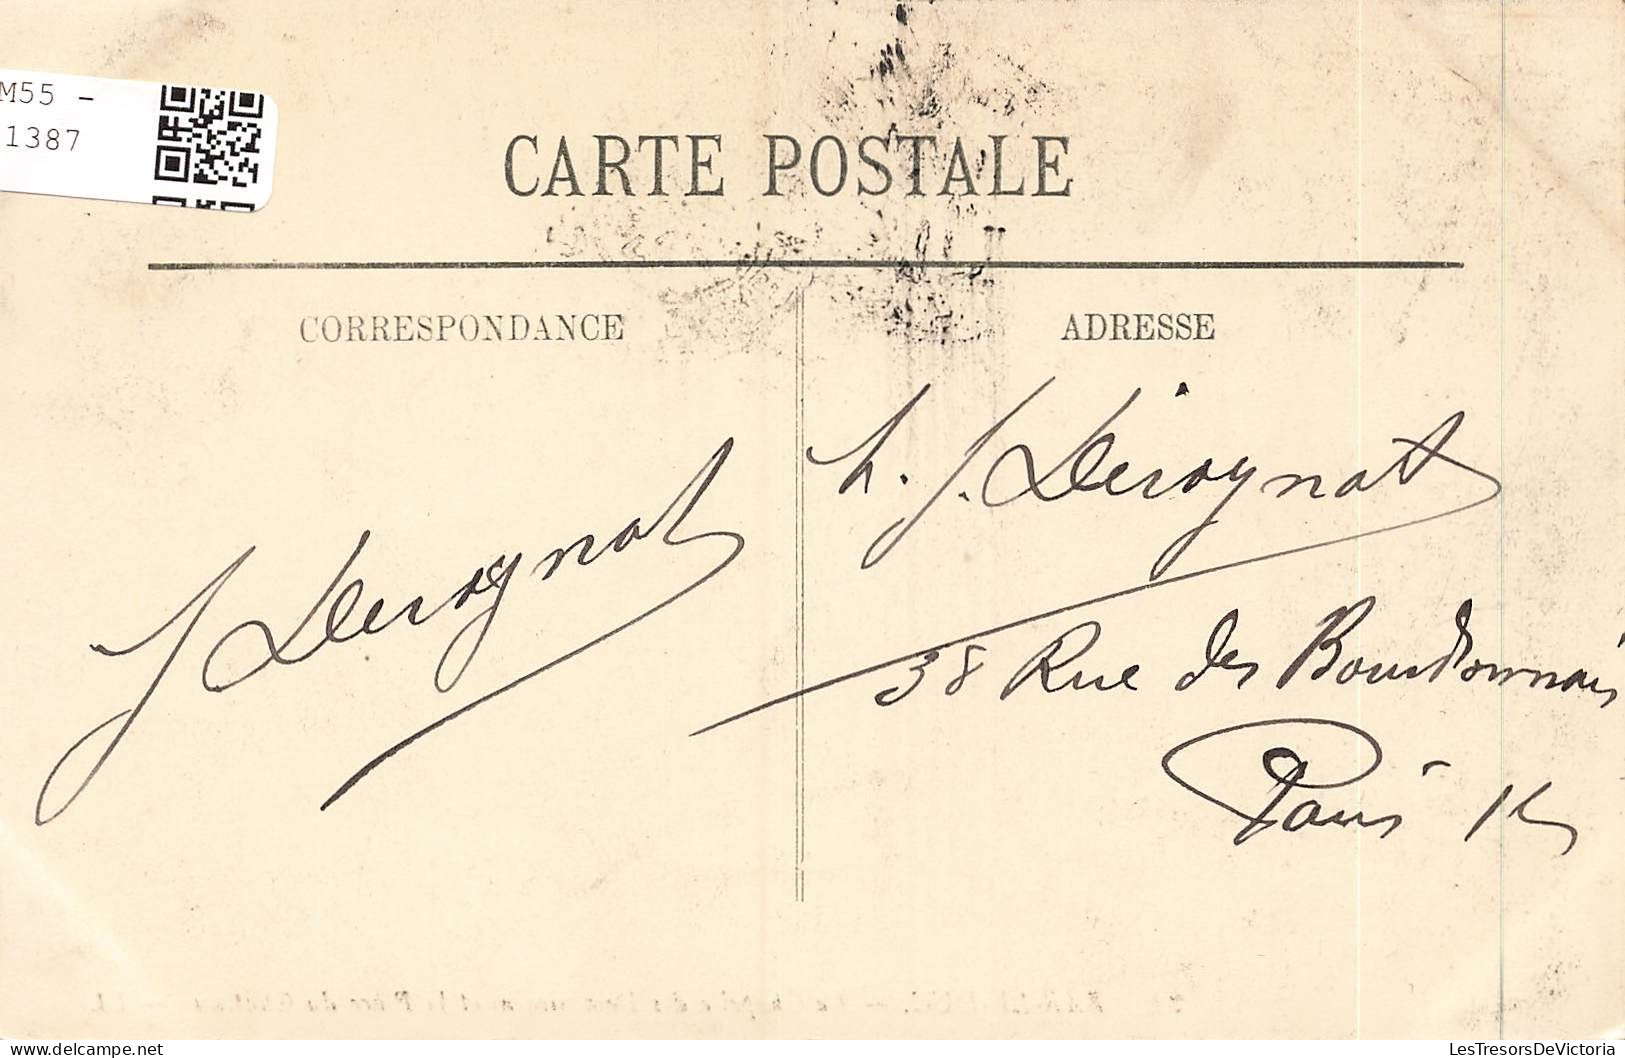 M55 -
1387
CARTE POSTALE
CORRESPONDANCE
ADRESSE
J Derognat
J. Derognat
38 Rue des Bourdonnais
Paris
LesTresorsDeVictoria